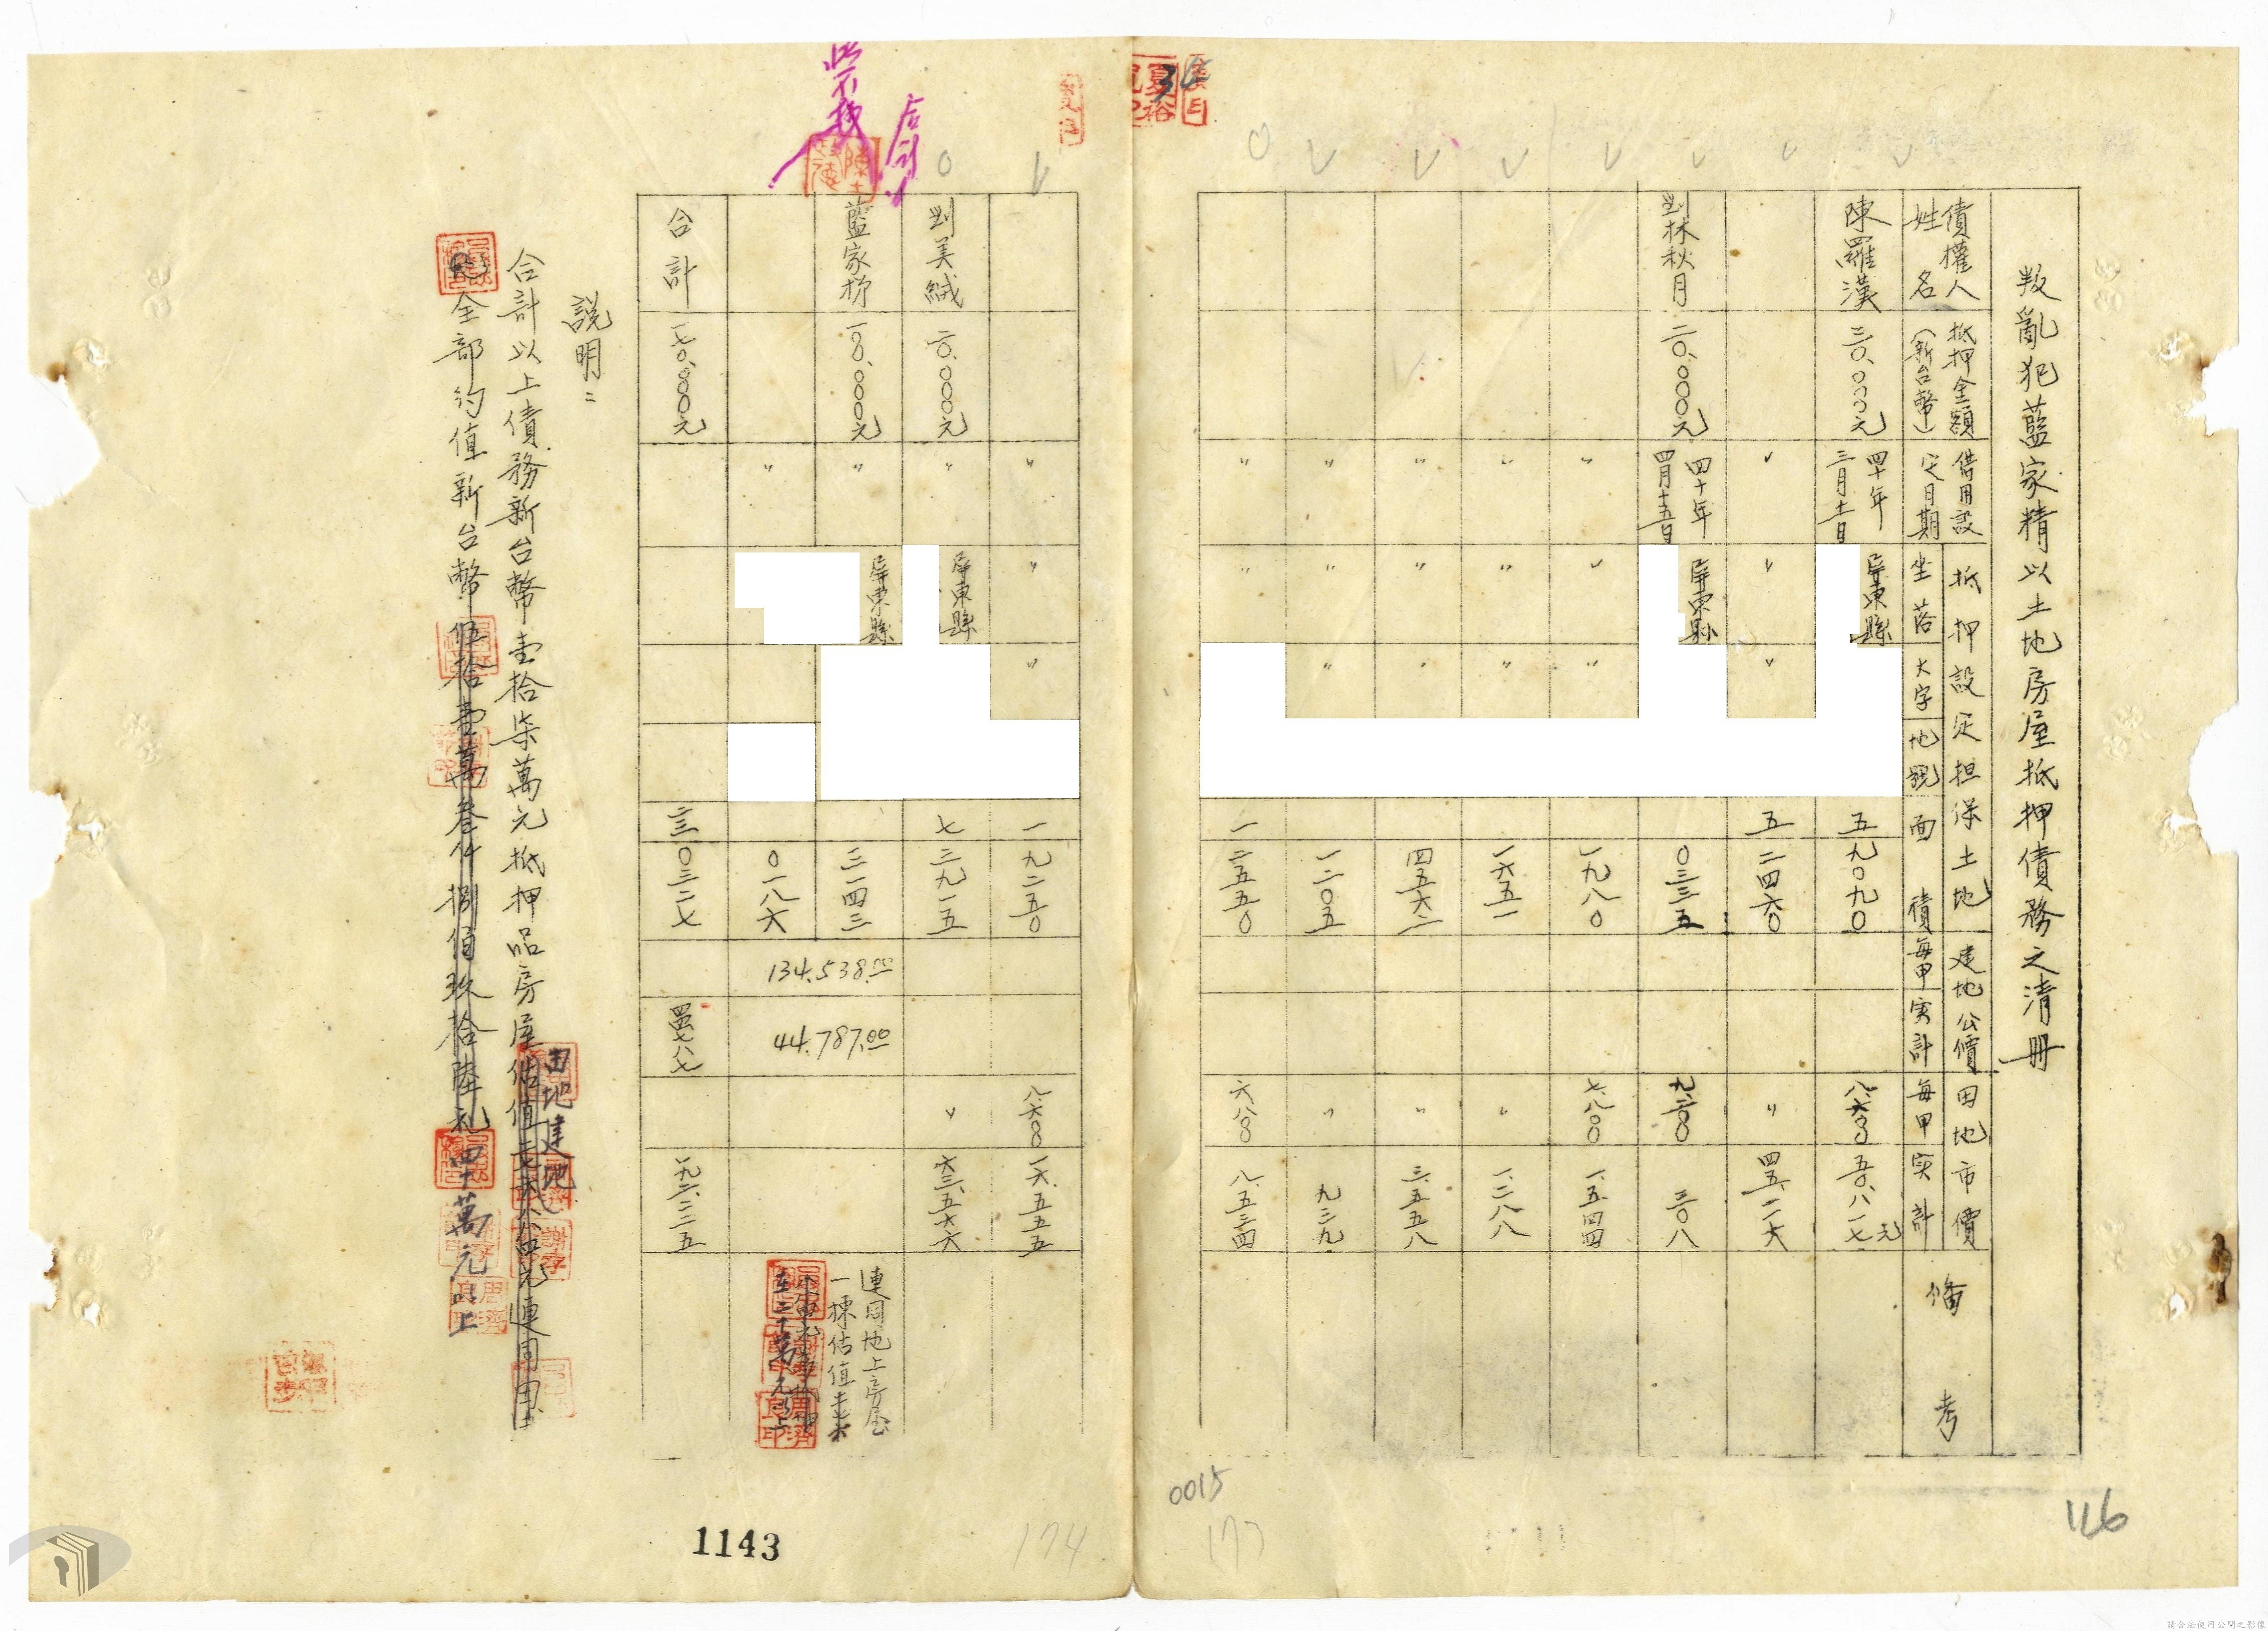 叛亂犯藍家精以土地房屋抵押債務之清冊
債權人姓名
抵押金額(新台幣)
借用設定日期
抵押設定担保土地
坐落
大字
地號
面積
建地公價
每甲
实計
田地市價
每甲
实計
備考
陳羅漢
三〇.〇〇〇元
四十年三月十一日
屏東縣
五 九〇九〇
八.六〇〇
五〇.八一七元
〃
〃
〃
五 二四六〇
〃
四五.一一六
劉林秋月
二〇.〇〇〇元
四十年四月十五日
屏東縣
〇三三五
九.二〇〇
三〇八
〃
〃
〃
一九八〇
七.八〇〇
一.五四四
〃
〃
〃
一六五一
〃
一.二八八
〃
〃
〃
四五六二
〃
三.五五八
〃
〃
〃
一二〇五
〃
九三九
〃
〃
一 二五五〇
六.八〇〇
八.五三四
〃
〃
〃
一 九二五〇
八.六〇〇
一六.五五五
劉美絨
二〇.〇〇〇元
〃
屏東縣
七 三九一五
〃
六三.五六六
藍家
一〇〇.〇〇〇元
〃
屏東縣
三一四三
〃
〇一八六
134.538.00
44.787.00
連同地上房屋
一棟估值
合計
一七〇.〇〇〇元
二三 〇三二七
四四七八七
一九二.二二五
說明:
合計以上債務新台幣壹拾柒萬元抵押品房屋估值 連同田
田地建地
全部約值新台幣伍拾壹萬叁仟捌佰玖拾陸元 四十萬元以上
此不抄
合計
34
0015
173
174
1143
116
請合法使用公開之影像